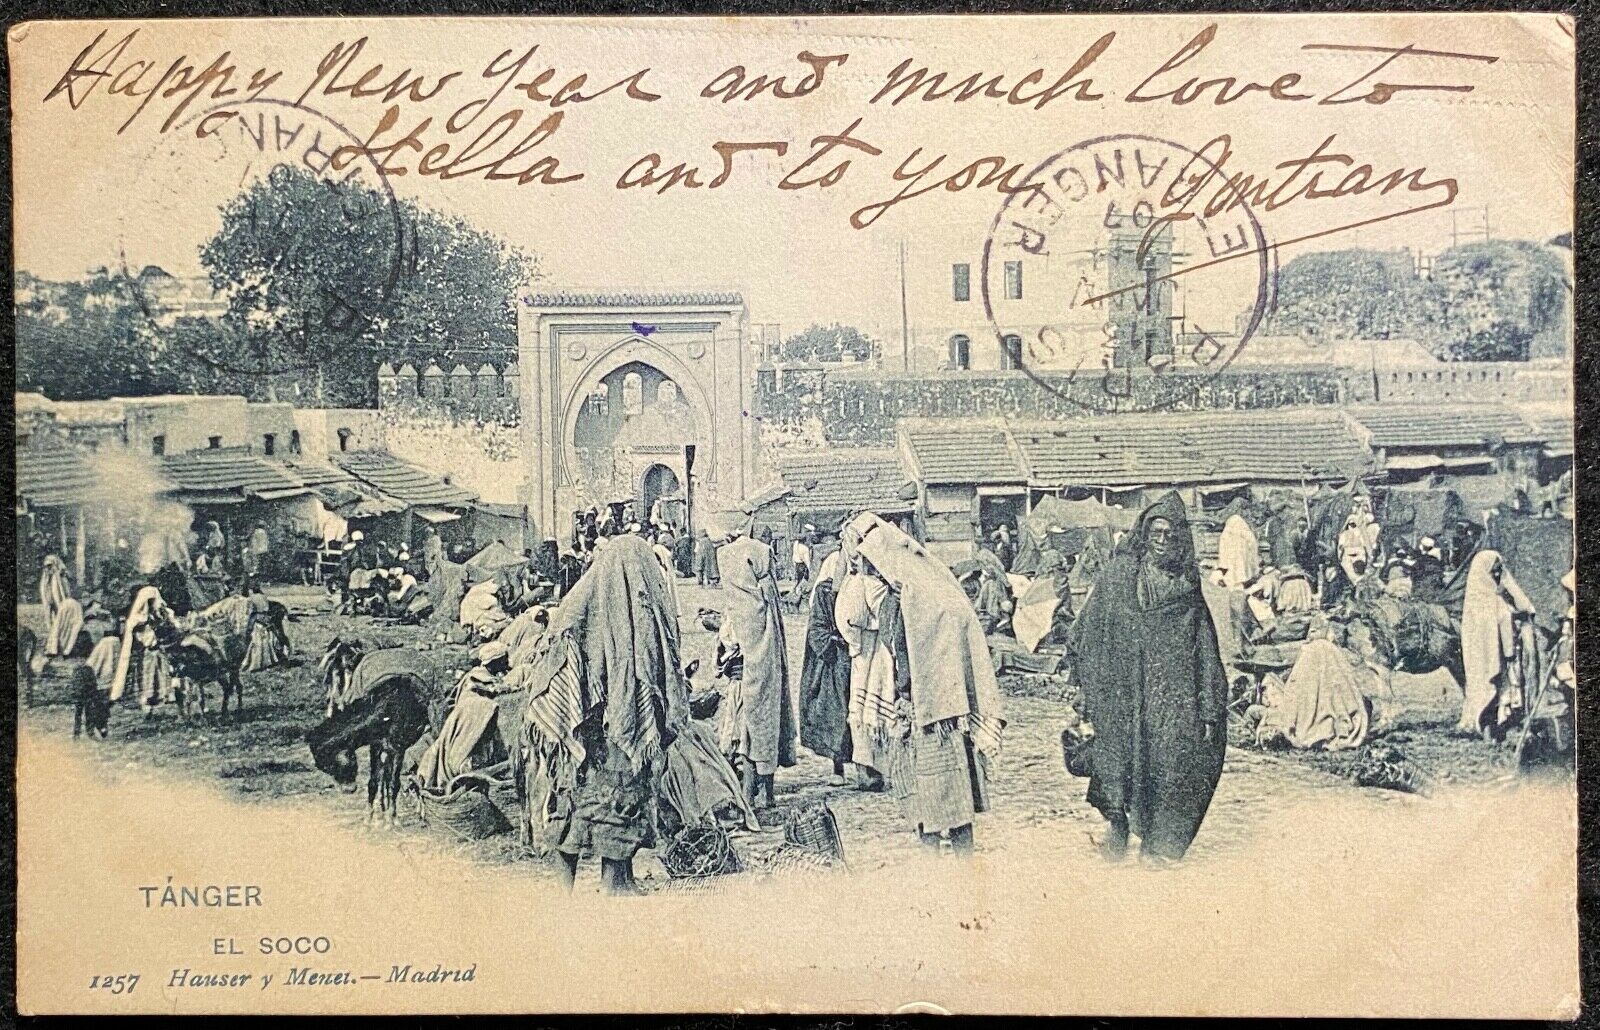 Happy New Year and much love to
Stella and to you Gontran
TANGER
07
TÁNGER
EL SOCO
1257 Hauser y Menet.—Madrid